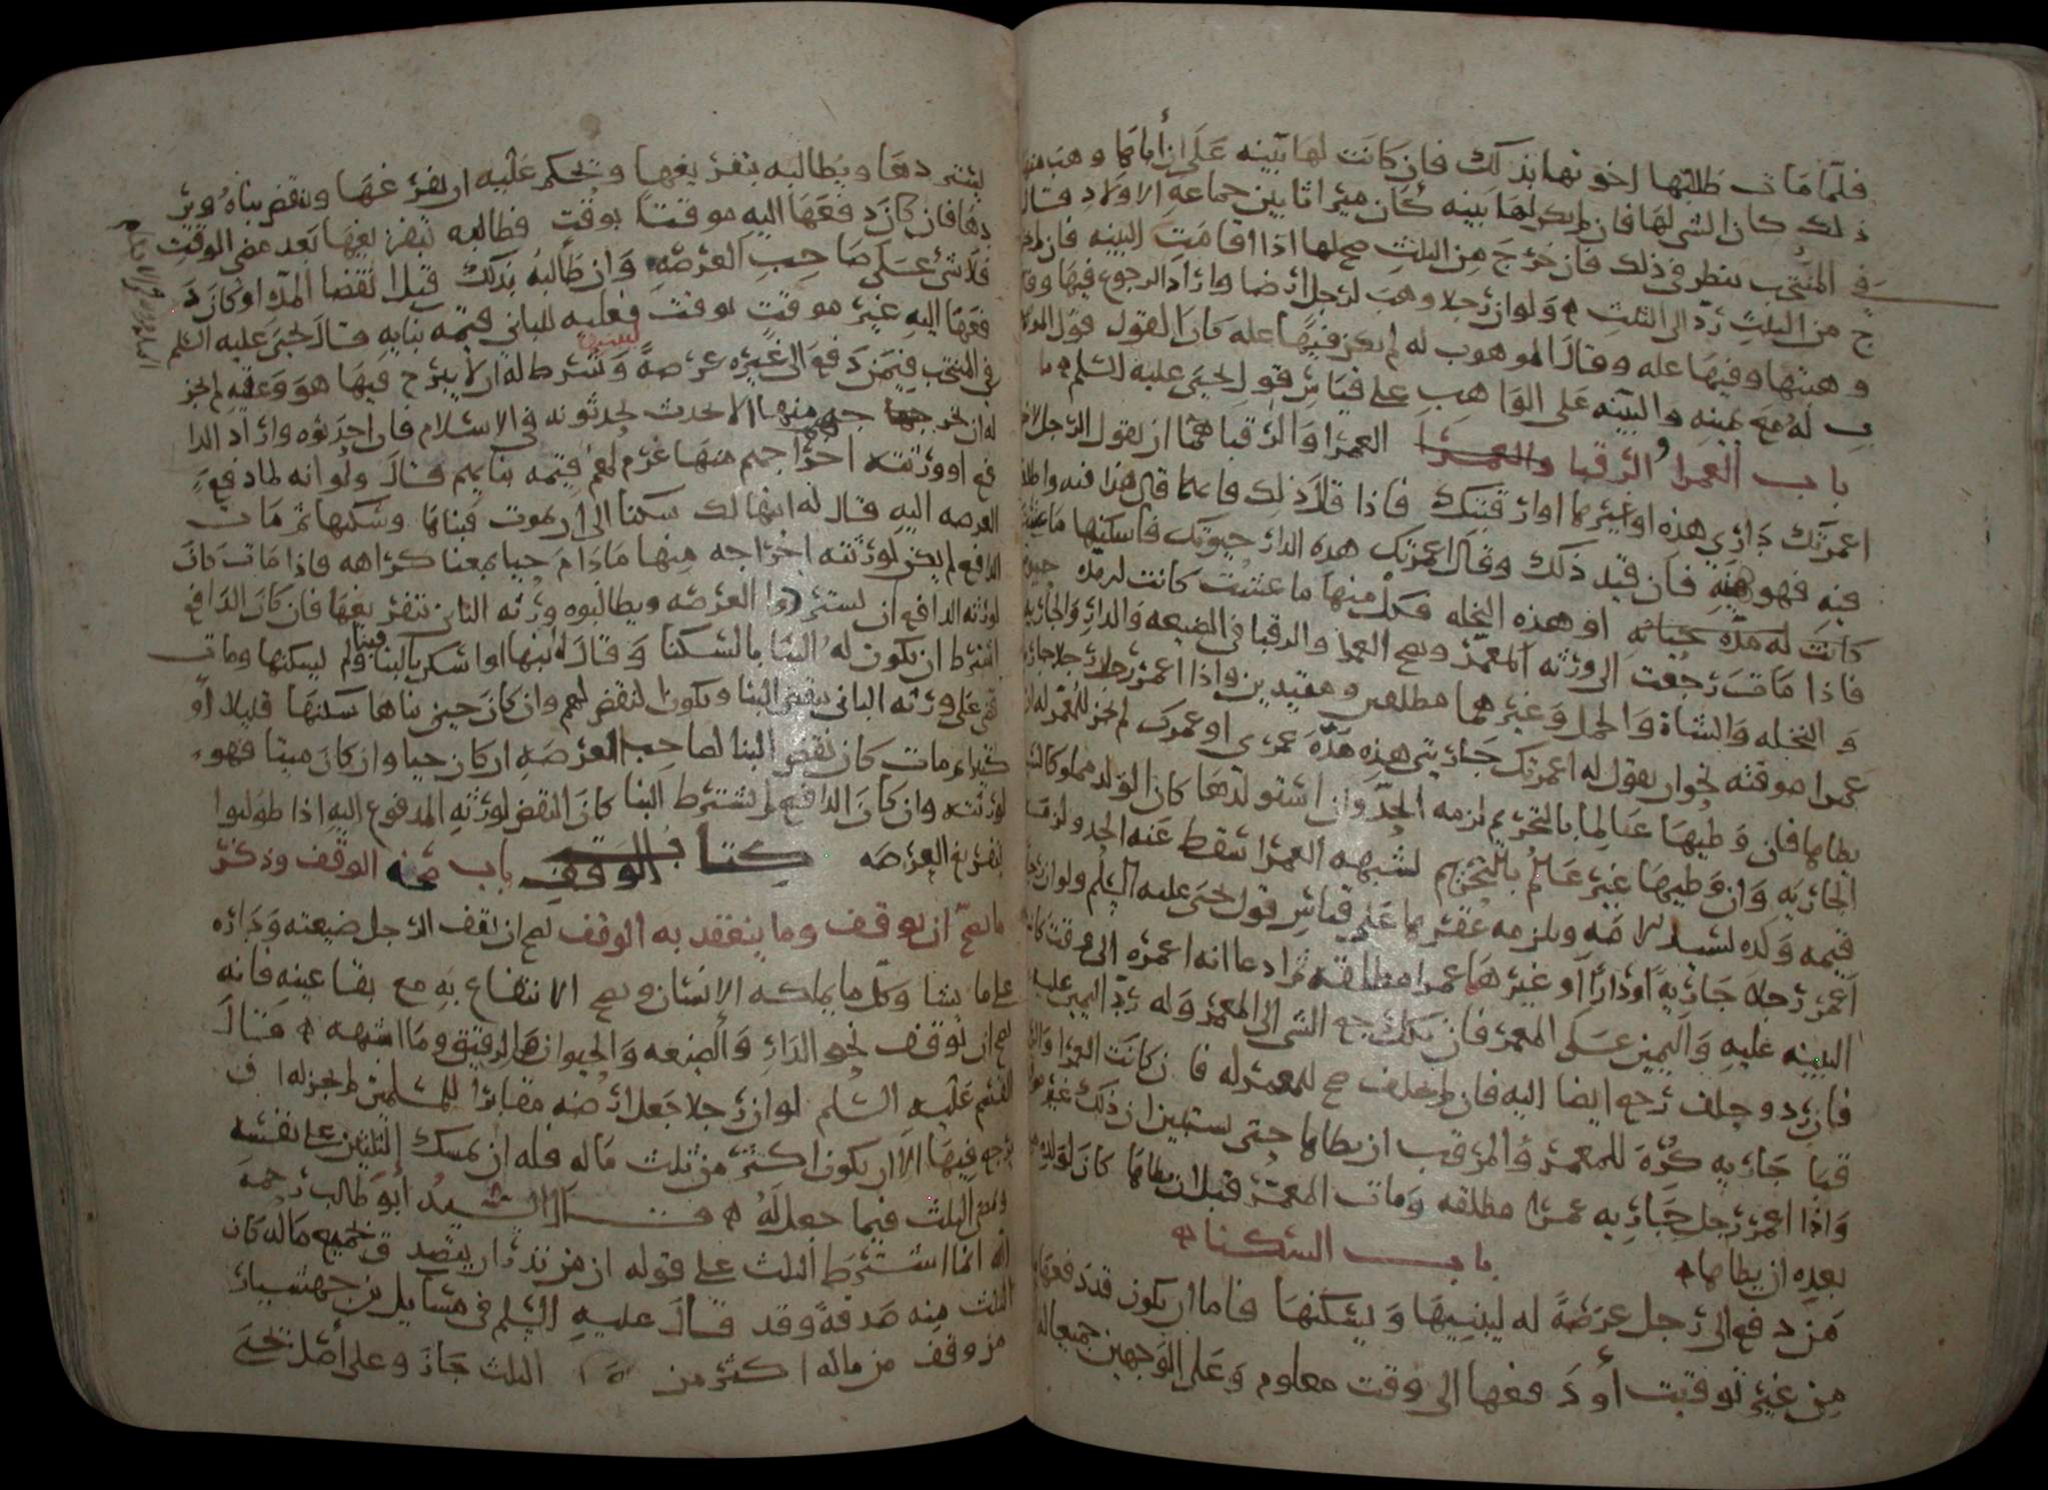 فلما ماتت طالبتها اخوتها بذلك فان كانت لها بينه على ان اباها وهب منها
ذلك كان الشي لها فان لم يكن لها بينه كان ميراثا بين جماعة الاولاد قال
في المنتخب ينظر في ذلك فان خرج من الثلث صح لها اذا اقامت البينه فان لم
ج من الثلث رد الى الثلث ولو ان رجلا وهب لرجل ارضا واراد الرجوع فيها وقد
وهبتها وفيها غله وقال الموهوب له لم يكن فيها غله كان القول قول
ب له مع يمينه والبينه على الواهب على قياس قول يحيى عليه السلم
باب العمرا والرقبا العمرا والرقبا هما ان يقول الرجل
اعمرتك داري هذه او غيرها او ارقبتك فاذا قال ذلك
فيه فهو هبه فان قيد ذلك وقال اعمرتك هذه الدار حيوتك فاسكنها ما عشت
كانت له مده حياته او هذه النخله فكل منها ما عشت كانت له مده
فاذا مات رجعت الى ورثه المعمر ويصح العمرا والرقبا في الضيعه والدار والجاريه
والنخله والشاة والجمل وغيرهما مطلقين ومقيدين واذا اعمر رجلا جاريه
عمرا موقته نحو ان يقول له اعمرتك جاريتي هذه مدة عمري او عمرك لم يجز للمعمر له ان
يطاها فان وطيها عالما بالتحريم لزمه الحد وان استولدها كان الولد مملوكا
الجاريه وان وطيها غير عالم بالتحريم لشبهه العمرا سقط عنه الحد ولزمه
قيمه ولده لسيد الامه ويلزمه عقرها على قياس قول يحيى عليه السلم ولو ان
اعمر رجلا جاريه او دارا او غيرها عمرا مطلقه ثم ادعا انه اعمره الى وقت كان
البينه عليه واليمين على المعمر فان نكل رجع الشي الى المعمر وله رد اليمين عليه
فان رد وحلف رجع ايضا اليه فان لم يحلف صح للمعمر له فان كانت العمرا
قبا جاريه كره للمعمر والمرقب ان يطاها حتى يستبين ان ذلك غير
واذا اعمر رجل جاريه عمرا مطلقه ومات المعمر قبل ان يطاها كان
بعده ان يطاها باب السكنا
من دفع الى رجل عرصة له ليبنيها ويسكنها فاما ان يكون قد دفعها
من غير توقيت او دفعها الى وقت معلوم وعلى الوجهين جميعا له
يستردها ويطالبه بتفريغها ويحكم عليه ان يفرغها وينقض بناه ويرد
دها فان كان دفعها اليه موقتا بوقت فطالبه بتفريغها بعد مضي الوقت
فلا شي على صاحب العرصه وان طالبه بذلك قبل انقضا المده او كان د
فعها اليه غير موقت بوقت فعليه للباني قيمه بنايه قال يحيى عليه السلم
في المنتخب فيمن دفع الى غيره عرصة وشرط له ان لا يبرح فيها هو وعقبه لم يجز
له ان يخرجه منها الا لحدث يحدثونه في الاسلام فان احدثوه واراد الدا
فع او ورثته اخراجهم منها غرم لهم قيمه بنايهم قال ولو انه لما دفع
العرصه اليه قال له ابنها لك سكنا الى ان يموت فبناها وسكنها ثم مات
الدافع لم يكن لورثته اخراجه منها ما دام حيا بمعنا كراهه فاذا مات كان
لورثه الدافع ان يستردوا العرصه ويطالبوه ورثه الباني بتفريغها فان كان الدافع
اشترط ان يكون له البنا بالسكنا وقال له ابنها واسكن بالبنا فبنا ولم يسكنها ومات
قضي على ورثه الباني بنقض البنا ويكون النقض لهم وان كان حين بناها سكنها قليلا او
كثيرا ثم مات كان نقض البنا لصاحب العرصه ان كان حيا وان كان ميتا فهو
لورثته وان كان الدافع لم يشترط البنا كان النقض لورثه المدفوع اليه اذا طولبوا
بتفريغ العرصه كتاب الوقف باب صحه الوقف وذكر
ما يصح ان يوقف وما ينعقد به الوقف يصح ان يقف الرجل ضيعته وداره
على ما يشا وكل ما يملكه الانسان ويصح الانتفاع به مع بقا عينه فانه
يصح ان يوقف نحو الدار والضيعه والحيوان والرقيق وما اشبهه قال
القسم عليه السلم لو ان رجلا جعل ارضه مقابرا للمسلمين لم يجز له ان
يرجع فيها الا ان يكون اكثر من ثلث ماله فله ان يمسك الثلثين على نفسه
ويمضي الثلث فيما جعل له قال السيد ابو طالب رحمه
الله انما اشترط الثلث على قوله ان من نذر ان يتصدق بجميع ماله كان
الثلث منه صدقة وقد قال عليه السلم في مسايل بن جهشيار
من وقف من ماله اكثر من الثلث جاز وعلى اصل يحيى